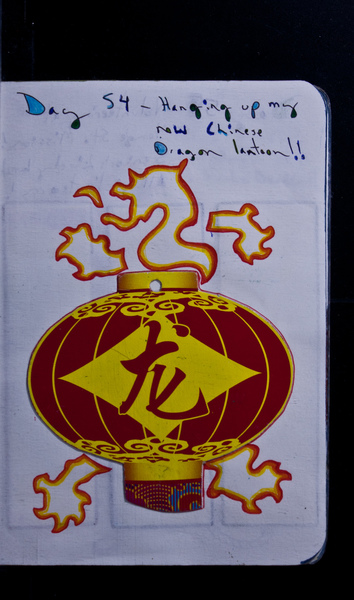 Day 54 - Hanging up my
new Chinese
Dragon lantoon!!
龙